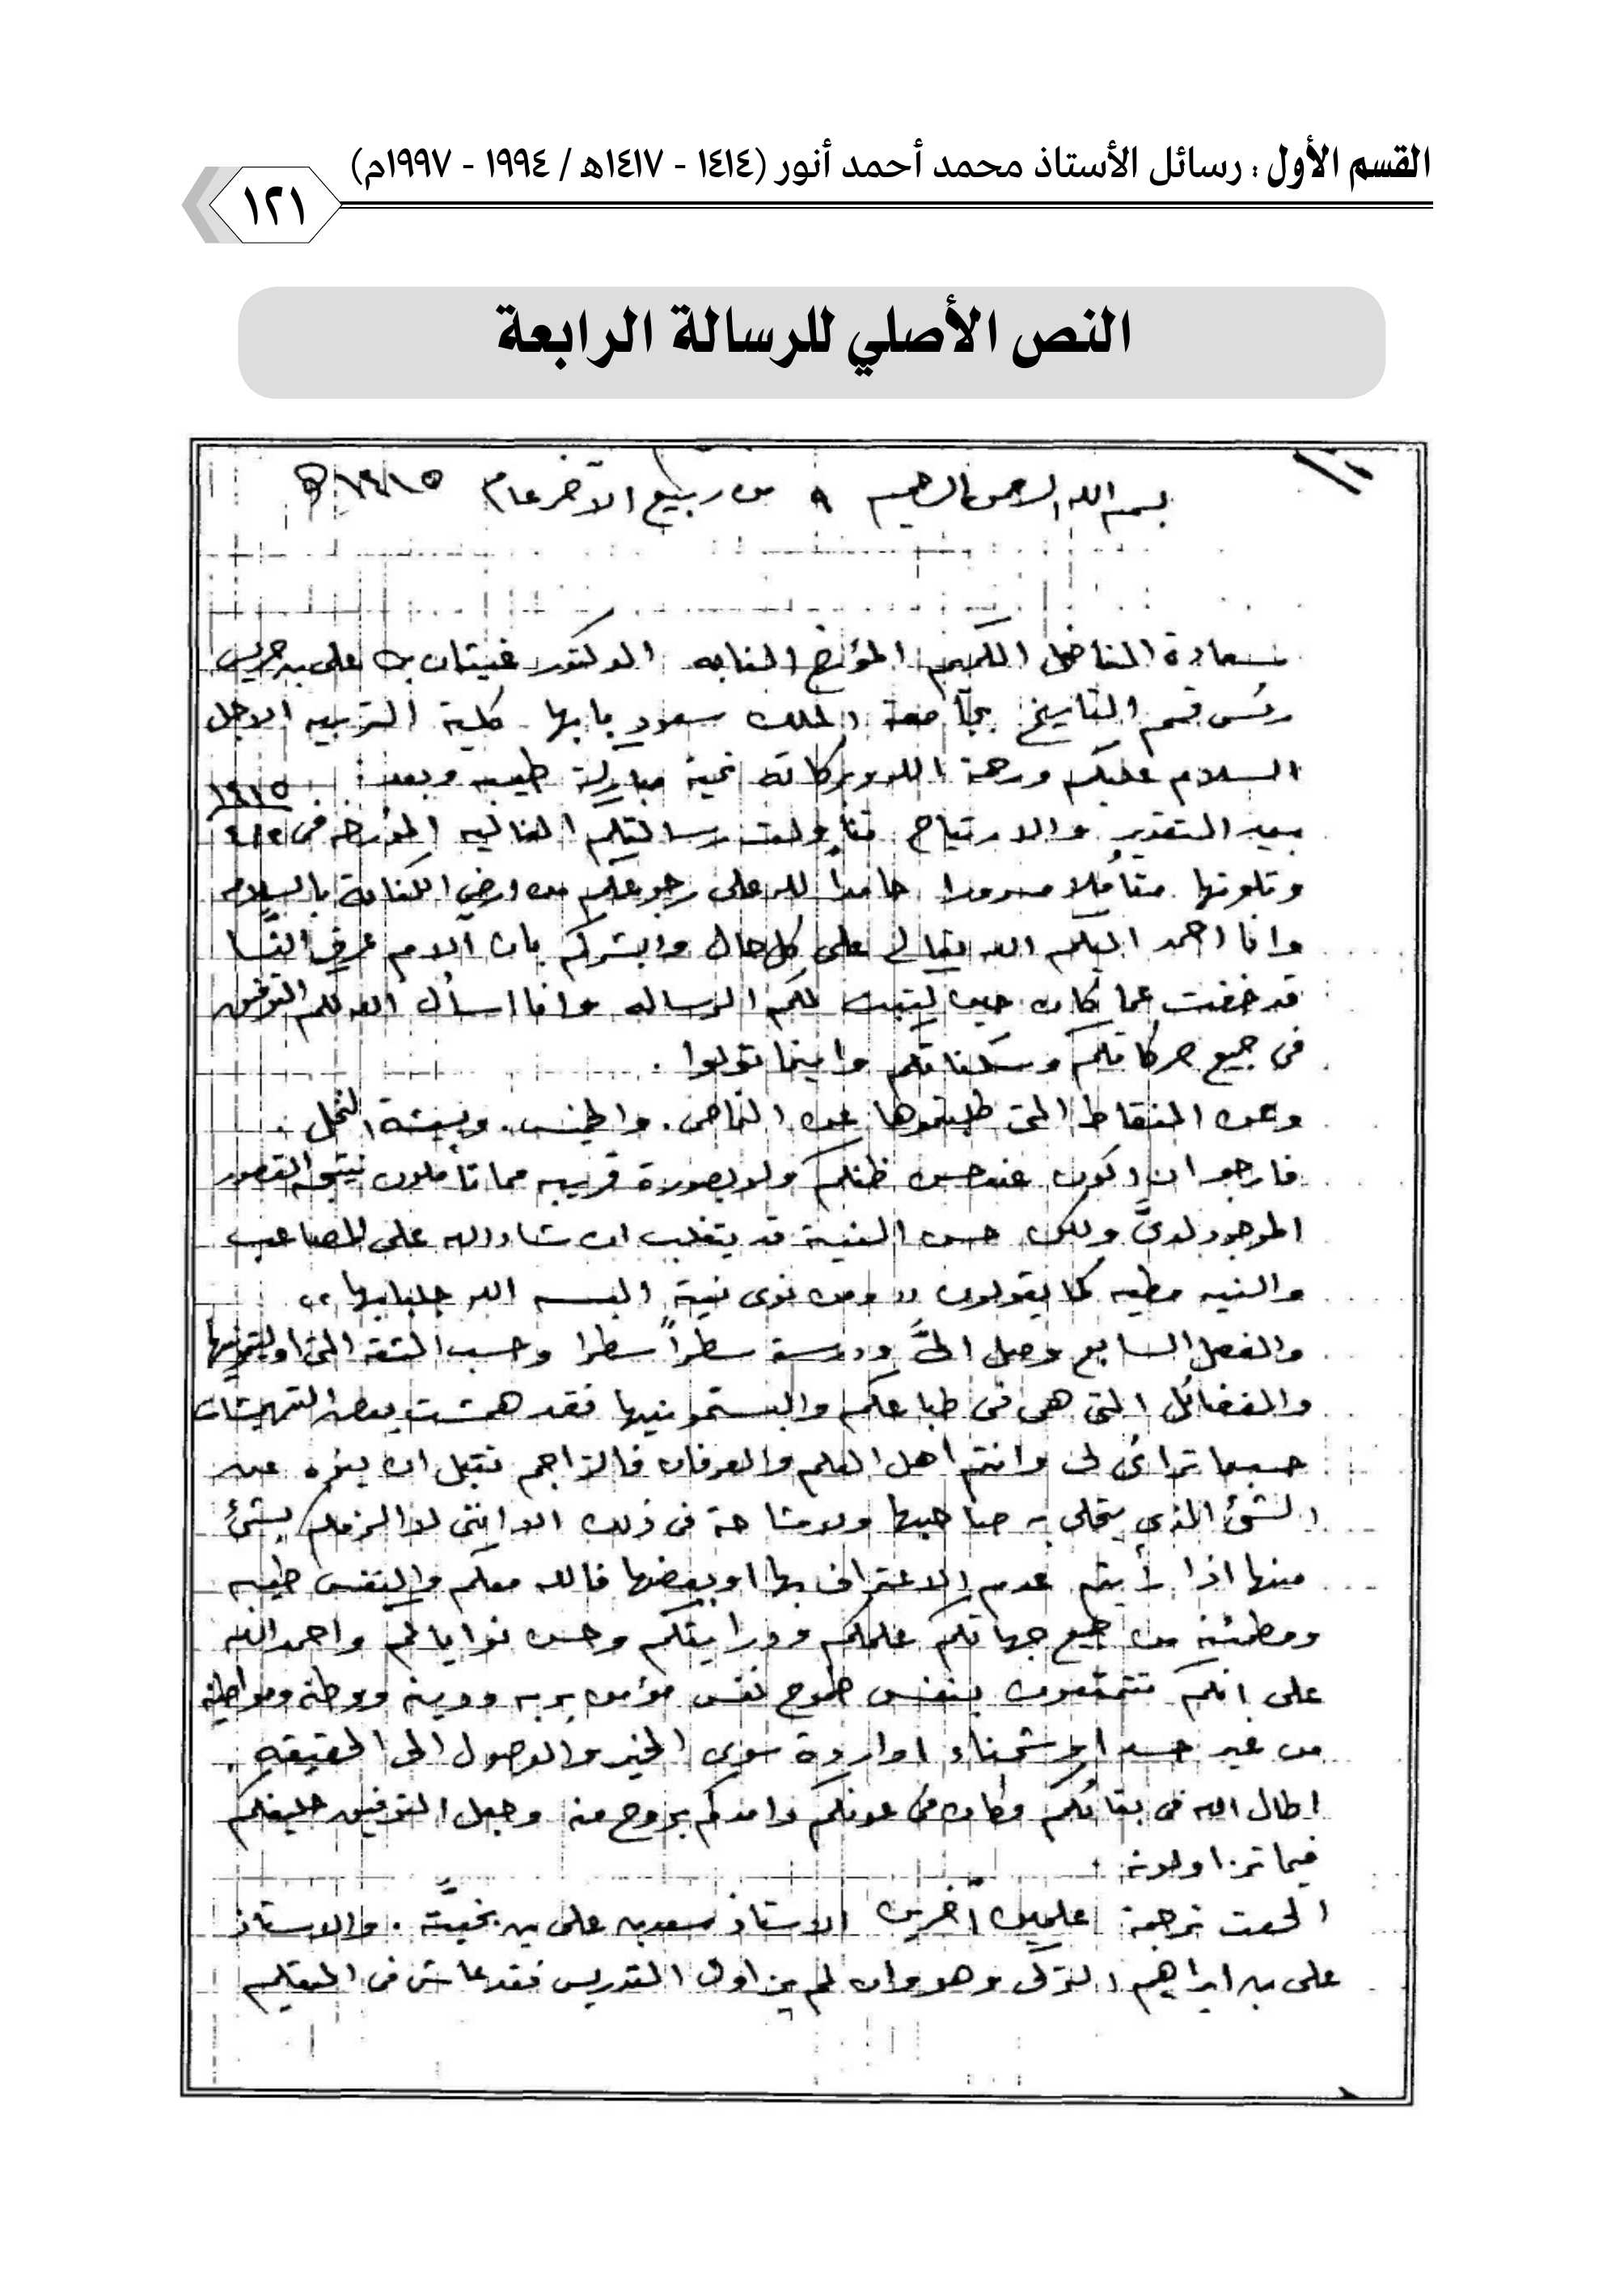 القسم الأول : رسائل الأستاذ محمد أحمد أنور (١٤١٤ - ١٤١٧هـ / ١٩٩٤ - ١٩٩٧م)
١٢١
النص الأصلي للرسالة الرابعة
بسم الله الرحمن الرحيم ٩ من ربيع الآخر عام ١٤١٥هـ
سعادة الفاضل الكريم المؤرخ النابه الدكتور غيثان بن على بن جريس
رئس قسم التاريخ بجامعة الملك سعود بابها كلية التربيه الاجل
السلام عليكم ورحمة الله وبركاته تحية مباركة طيبه وبعد :
بيد التقدير والارتياح تناولت رسالتكم الغاليه المؤرخه فى
وتلوتها متأملا مسرورا حامدا لله على رجوعكم من ارض الكنانة بالسلامه
وانا احمد اليكم الله تعالى على كل حال وابشركم بان آلام عرق النسا
قد خفت عما كان حين كتبت لكم الرساله وانا اسأل الله لكم التوفيق
فى جميع حركاتكم وسكناتكم واينما تولوا .
وعن النقاط التى طلبتموها عن النماص . والجنس . وبيشة النخل .
فارجو ان اكون عند حسن ظنكم ولو بصورة قريبه مما تأملون نتيجه القصور
الموجود لدىَّ ولكن حسن النية قد يتغلب ان شاء الله على المصاعب
والنيه مطيه كما يقولون " ومن نوى نية البسه الله جلبابها "
والفصل السابع وصل الىَّ ودرسته سطراً سطرا وحسب الثقه التى اوليتمونيها
والفضائل التى هى فى طباعكم والبستمونيها فقد همشت بعض التهميشات
حسبما تراءى لى وانتم اهل العلم والعرفان فالتراجم تقبل ان ينوه عن
الشئ الذى يتحلى به صاحبها ولا مشاحة فى ذلك الا اننى لا الزمكم بشئ
منها اذا رأيتم عدم الاعتراف بها او بعضها فالله معكم والنفس طيبه
ومطمئنه من جميع جهاتكم علمكم ودرايتكم وحسن نواياكم واحمد الله
على انكم تتمتعون بنفس طموح نفس مؤمن بربه ودينه ووطنه ومواطنيه
من غير حسد او شحناء او ارادة سوى الخير والوصول الى الحقيقه .
اطال الله فى بقائكم وكان فى عونكم وامدكم بروح منه وجعل التوفيق حليفكم
فيما تزاولونه .
الحقت ترجمة علمين آخرين الاستاذ سعد بن على بن بخيتة . والاستاذ
على بن ابراهيم التركى وهو وان لم يزاول التدريس فقد عاش فى التعليم